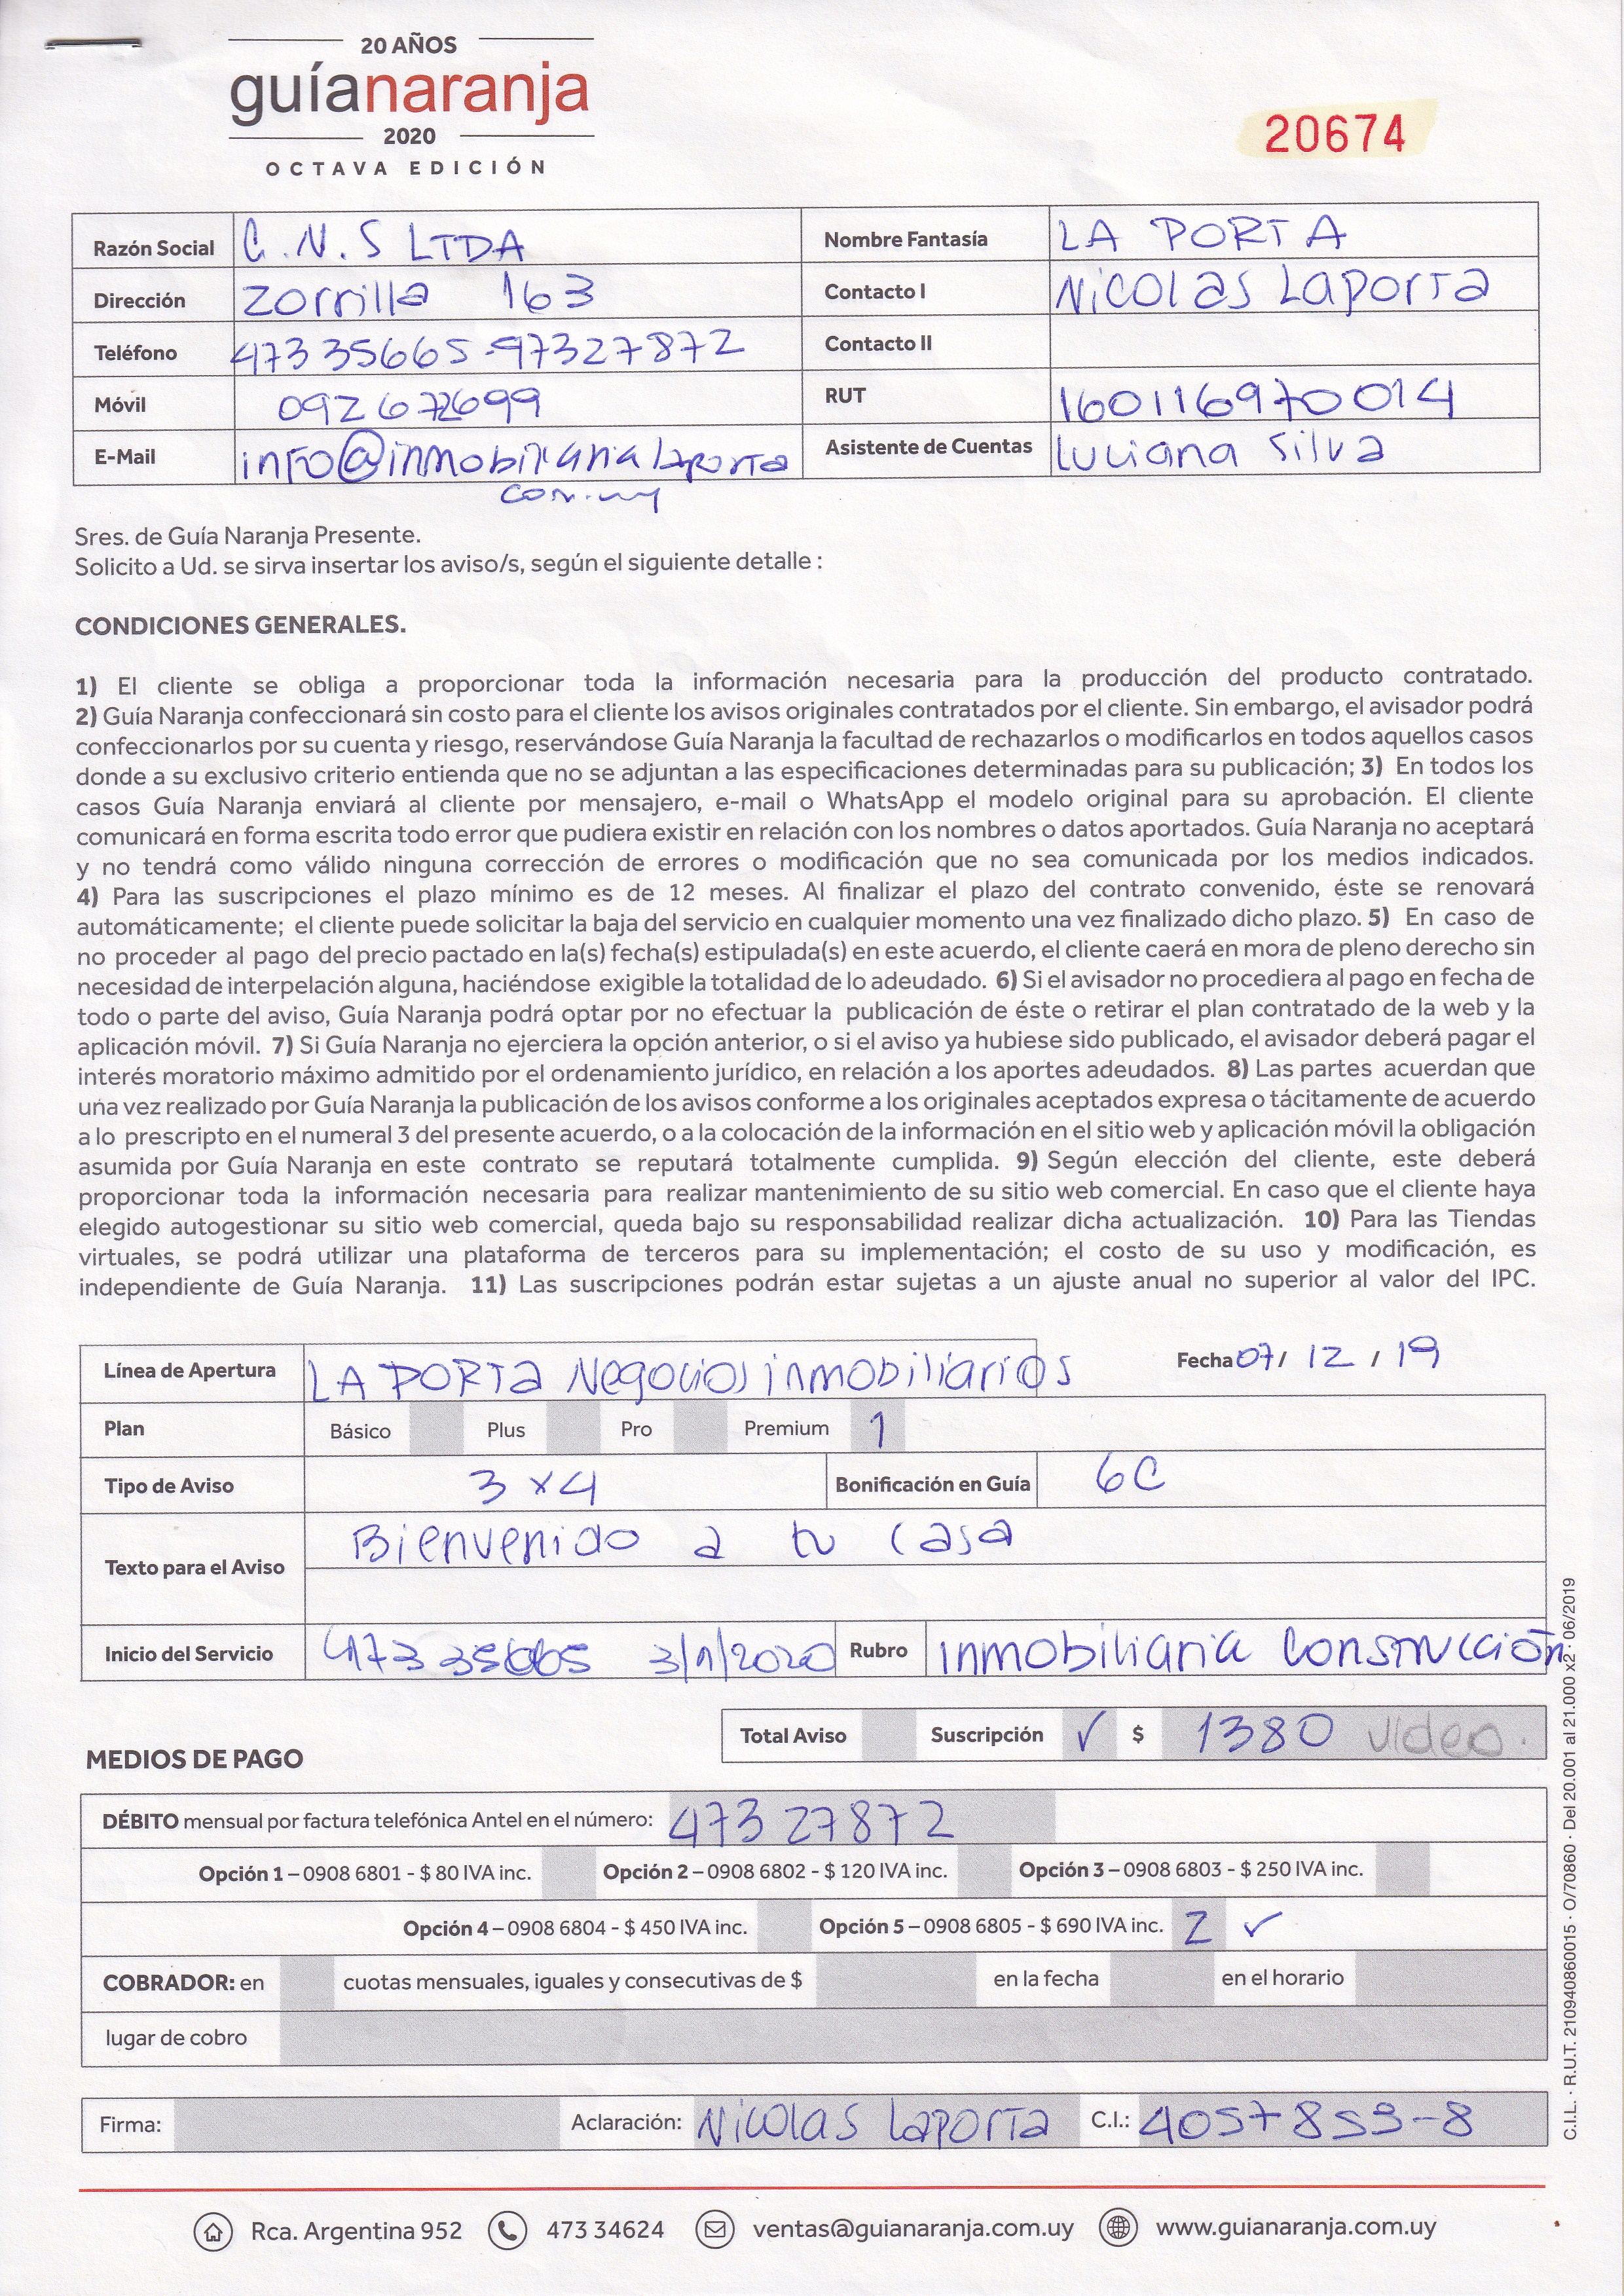 20 AÑOS
guíanaranja
2020
OCTAVA EDICIÓN
20674
Razón Social C.N.S LTDA Nombre Fantasía LA PORTA
Dirección Zorrilla 163 Contacto I Nicolas Laporta
Teléfono 473 35665-47327872 Contacto II
Móvil 092672699 RUT 160116970014
E-Mail info@inmobiliarialaporta Asistente de Cuentas Luciana Silva
com.uy
Sres. de Guía Naranja Presente.
Solicito a Ud. se sirva insertar los aviso/s, según el siguiente detalle :
CONDICIONES GENERALES.
1) El cliente se obliga a proporcionar toda la información necesaria para la producción del producto contratado.
2) Guía Naranja confeccionará sin costo para el cliente los avisos originales contratados por el cliente. Sin embargo, el avisador podrá
confeccionarlos por su cuenta y riesgo, reservándose Guía Naranja la facultad de rechazarlos o modificarlos en todos aquellos casos
donde a su exclusivo criterio entienda que no se adjuntan a las especificaciones determinadas para su publicación; 3) En todos los
casos Guía Naranja enviará al cliente por mensajero, e-mail o WhatsApp el modelo original para su aprobación. El cliente
comunicará en forma escrita todo error que pudiera existir en relación con los nombres o datos aportados. Guía Naranja no aceptará
y no tendrá como válido ninguna corrección de errores o modificación que no sea comunicada por los medios indicados.
4) Para las suscripciones el plazo mínimo es de 12 meses. Al finalizar el plazo del contrato convenido, éste se renovará
automáticamente; el cliente puede solicitar la baja del servicio en cualquier momento una vez finalizado dicho plazo. 5) En caso de
no proceder al pago del precio pactado en la(s) fecha(s) estipulada(s) en este acuerdo, el cliente caerá en mora de pleno derecho sin
necesidad de interpelación alguna, haciéndose exigible la totalidad de lo adeudado. 6) Si el avisador no procediera al pago en fecha de
todo o parte del aviso, Guía Naranja podrá optar por no efectuar la publicación de éste o retirar el plan contratado de la web y la
aplicación móvil. 7) Si Guía Naranja no ejerciera la opción anterior, o si el aviso ya hubiese sido publicado, el avisador deberá pagar el
interés moratorio máximo admitido por el ordenamiento jurídico, en relación a los aportes adeudados. 8) Las partes acuerdan que
una vez realizado por Guía Naranja la publicación de los avisos conforme a los originales aceptados expresa o tácitamente de acuerdo
a lo prescripto en el numeral 3 del presente acuerdo, o a la colocación de la información en el sitio web y aplicación móvil la obligación
asumida por Guía Naranja en este contrato se reputará totalmente cumplida. 9) Según elección del cliente, este deberá
proporcionar toda la información necesaria para realizar mantenimiento de su sitio web comercial. En caso que el cliente haya
elegido autogestionar su sitio web comercial, queda bajo su responsabilidad realizar dicha actualización. 10) Para las Tiendas
virtuales, se podrá utilizar una plataforma de terceros para su implementación; el costo de su uso y modificación, es
independiente de Guía Naranja. 11) Las suscripciones podrán estar sujetas a un ajuste anual no superior al valor del IPC.
Línea de Apertura LA PORTA Negocios inmobiliarios Fecha 07/ 12 / 19
Plan Básico Plus Pro Premium 1
Tipo de Aviso 3 x 4 Bonificación en Guía 6C
Texto para el Aviso Bienvenido a tu casa
Inicio del Servicio 473 35665 3/1/2020 Rubro inmobiliaria Construcción
Total Aviso Suscripción ✓ $ 1380 video.
MEDIOS DE PAGO
DÉBITO mensual por factura telefónica Antel en el número: 473 27872
Opción 1 – 0908 6801 - $ 80 IVA inc. Opción 2 – 0908 6802 - $ 120 IVA inc. Opción 3 – 0908 6803 - $ 250 IVA inc.
Opción 4 – 0908 6804 - $ 450 IVA inc. Opción 5 – 0908 6805 - $ 690 IVA inc. 2 ✓
COBRADOR: en cuotas mensuales, iguales y consecutivas de $ en la fecha en el horario
lugar de cobro
Firma: Aclaración: Nicolas Laporta C.I.: 4057859-8
Rca. Argentina 952 473 34624 ventas@guianaranja.com.uy www.guianaranja.com.uy
C.I.L. · R.U.T. 210940860015 · O/70860 · Del 20.001 al 21.000 x2 · 06/2019